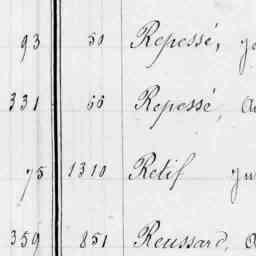 93 50 Repessé,
331 66 Repessé,
75 1310 Retif
359 851 Reussard,